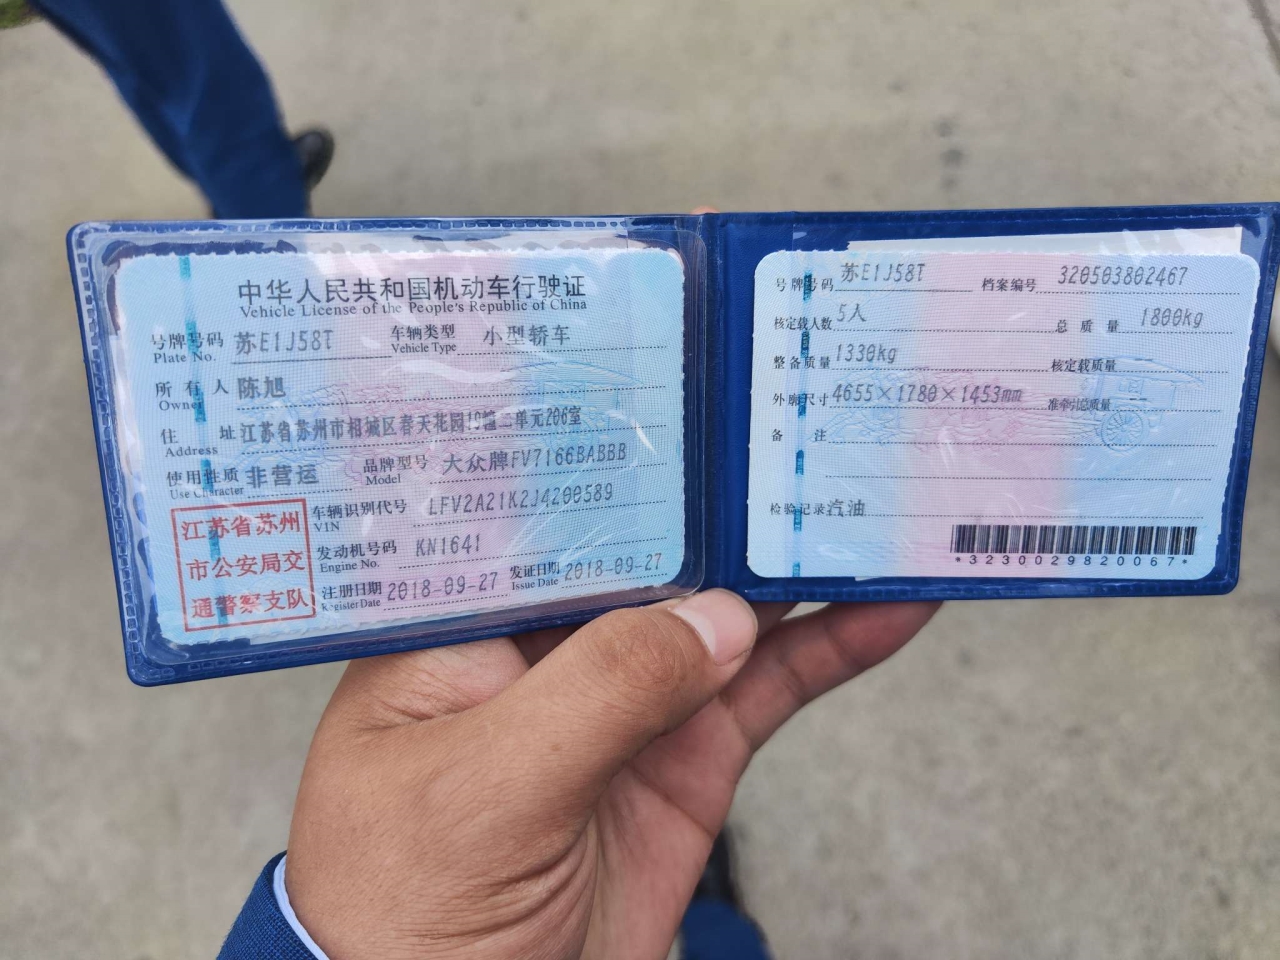 中华人民共和国机动车行驶证
Vehicle License of the People's Republic of China
号牌号码 苏E1J58T 车辆类型 小型轿车
Plate No. Vehicle Type
所有人 陈旭
Owner
住址 江苏省苏州市相城区春天花园19幢二单元206室
Address
使用性质 非营运 品牌型号 大众牌FV7166BABBB
Use Character Model
江苏省苏州
市公安局交
通警察支队
车辆识别代号 LFV2A21K2J4200589
VIN
发动机号码 KN1641
Engine No.
注册日期 2018-09-27 发证日期 2018-09-27
Register Date Issue Date
号牌号码 苏E1J58T 档案编号 320503802467
核定载人数 5人 总质量 1800kg
整备质量 1330kg 核定载质量
外廓尺寸 4655×1780×1453mm 准牵引总质量
备注
检验记录 汽油
*3230029820067*